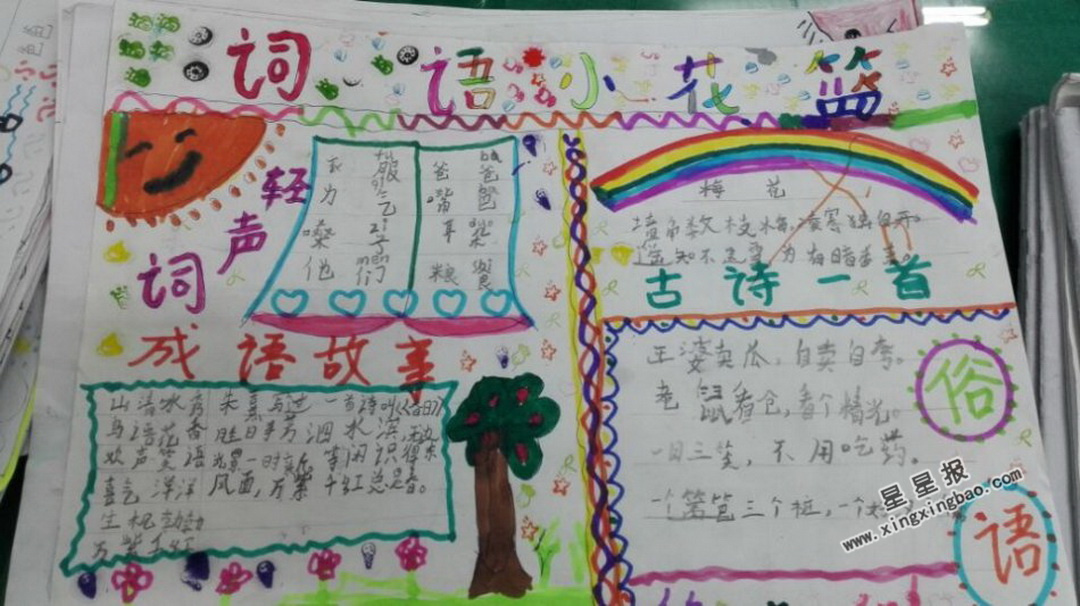 词语小花篮
轻声词
服气
为
爸爸
嘴巴
嗓子
耳朵
他们
粮食
成语故事
山清水秀
鸟语花香
欢声笑语
喜气洋洋
生机勃勃
万紫千红
朱熹写过一首诗叫《春日》
胜日寻芳泗水滨，无边
光景一时新。等闲识得东
风面，万紫千红总是春。
梅花
墙角数枝梅，凌寒独自开。
遥知不是雪，为有暗香来。
古诗一首
俗语
王婆卖瓜，自卖自夸。
老鼠看仓，看个精光。
一日三笑，不用吃药。
一个篱笆三个桩，一个
星星报
www.xingxingbao.com